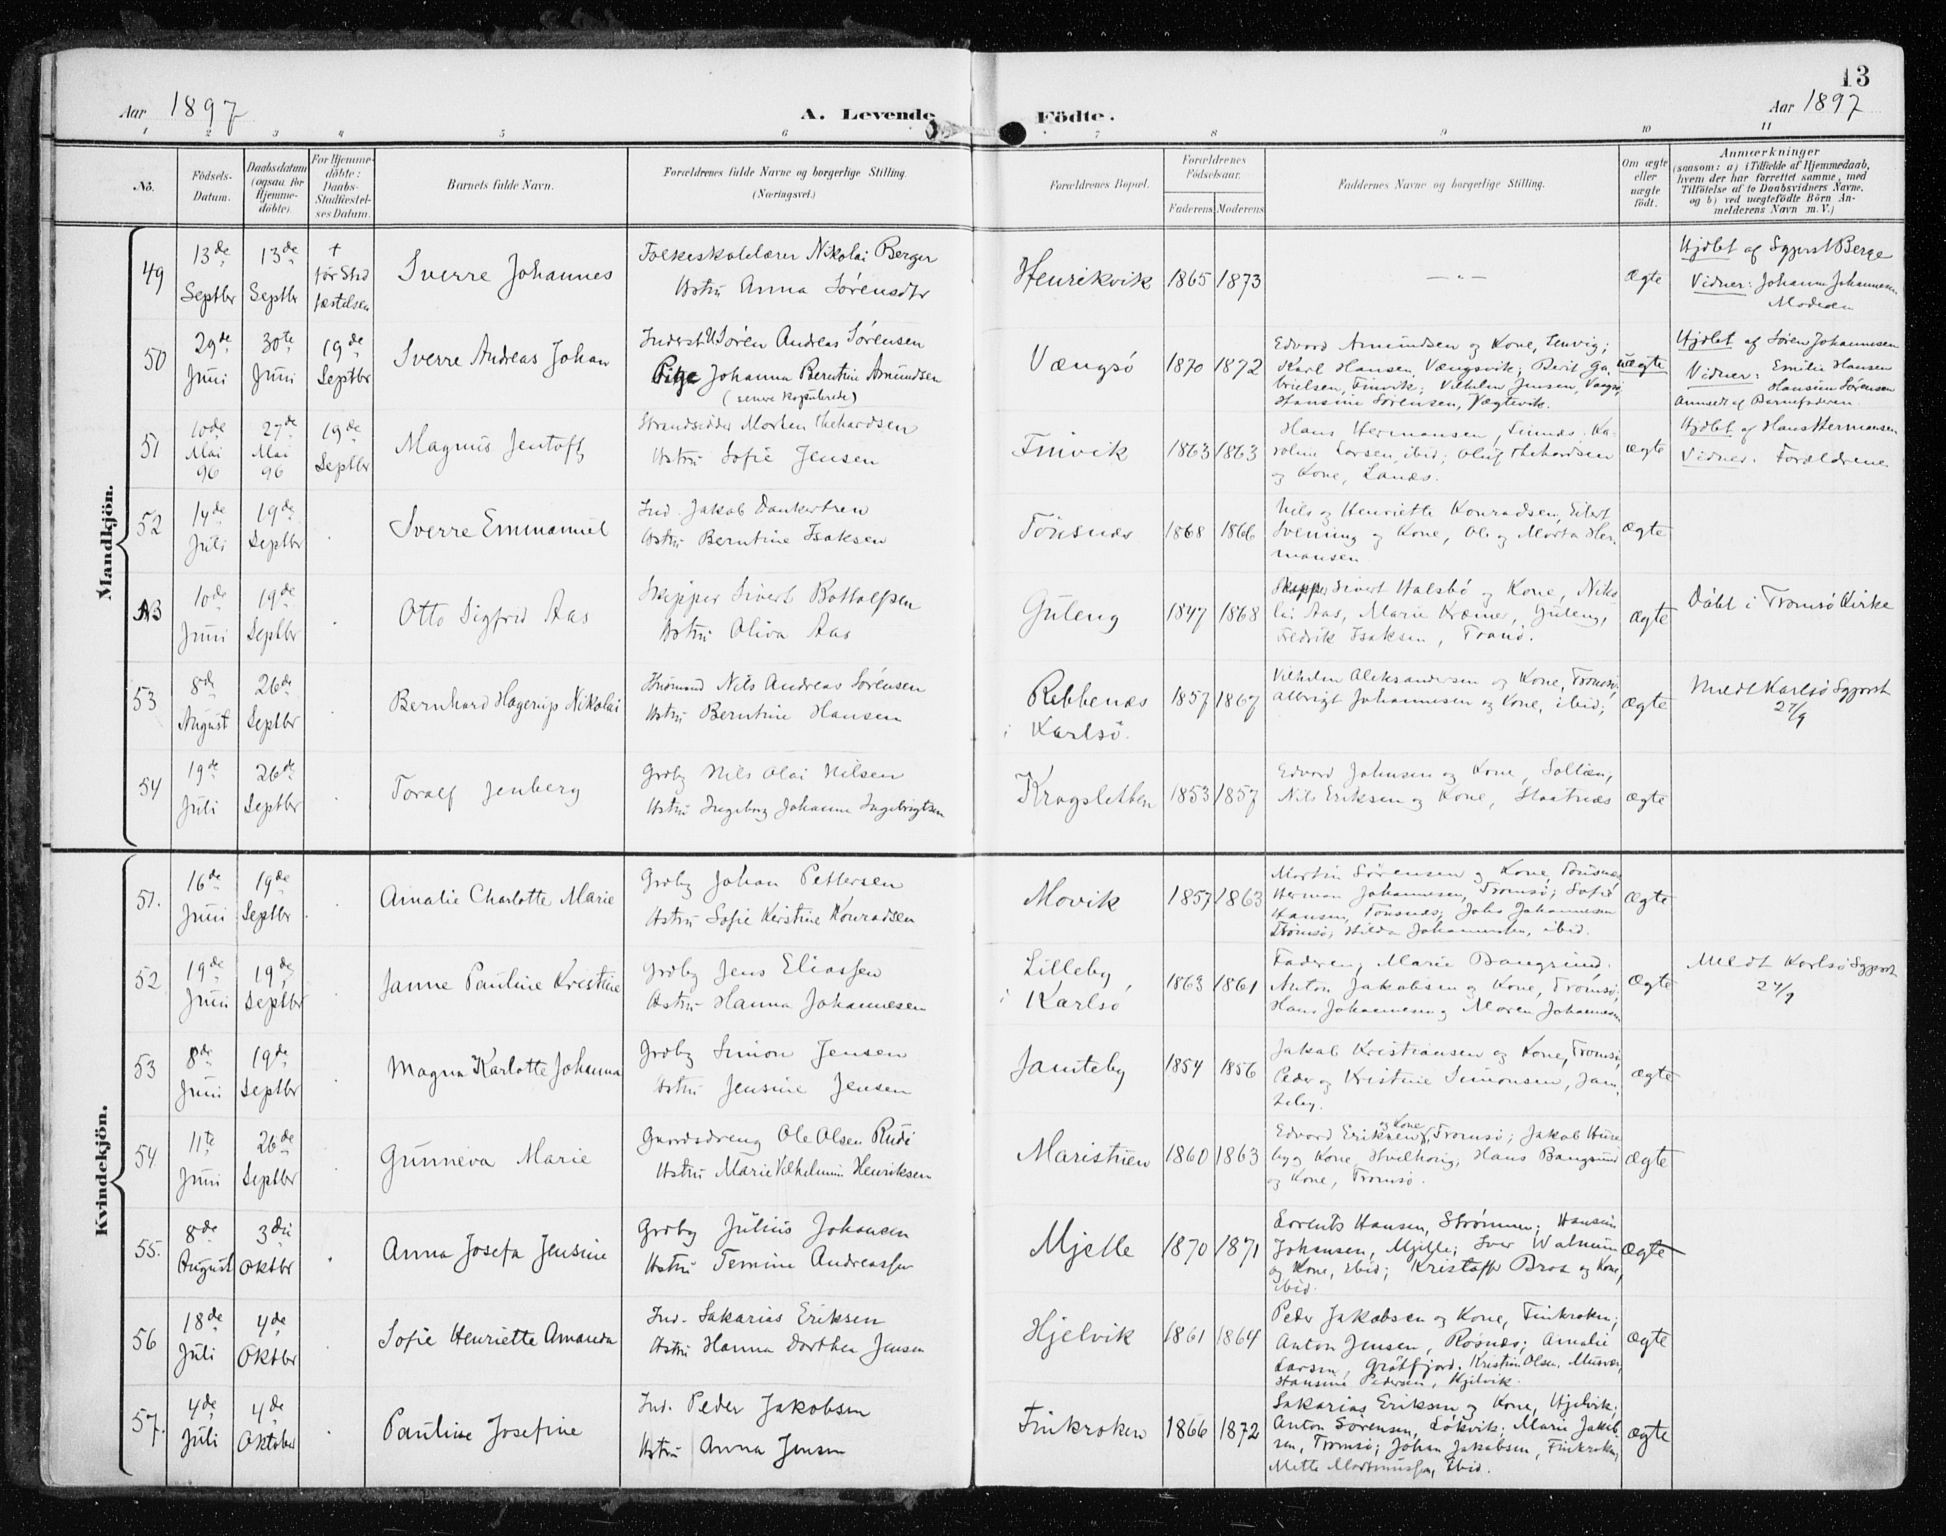 13
Aar 1897
A. Levende
Födte.
Aar 1897
1 2 3 4 5 6 7 8 9 10 11
No.
Födsels-
Datum.
Daabsdatum
(ogsaa for
Hjemme-
döbte).
For Hjemme-
döbte:
Daabs-
Stadfæstel-
ses Datum.
Barnets fulde Navn.
Forældrenes fulde Navne og borgerlige Stilling.
(Næringsvei.)
Forældrenes Bopæl.
Forældrenes
Födselsaar.
Faderens Moderens
Faddernes Navne og borgerlige Stilling.
Om ægte
eller
uægte
födt.
Anmærkninger
(saasom: a) i Tilfælde af Hjemmedaab,
hvem der har forrettet samme, med
Tilföielse af to Daabsvidners Navne.
og b) ved uægtefödte Börn An-
melderens Navn m. V.)
Mandkjön.
49
13de
Septbr
13de
Septbr
†
før Stad
fæstelsen
Sverre Johannes
Folkeskolelærer Nikolai Berger
Hstru Anna Sørensdtr
Henrikvik
1865 1873
— " —
Ægte
Hjdbt af Sgprst Berge
Vidner: Johanna Johannesen
50
29de
Juni
30te
Juni
19de
Septbr
Sverre Andreas Johan
Inderst Søren Andreas Sørensen
Pige Johanna Berntine Amundsen
(senere kopulerede)
Vængsø
1870 1872
Edvard Amundsen og Kone, Lenvig;
Karl Hansen, Vængsvik; Berit Ga-
brielsen, Finvik; Vilhelm Jensen, Vængsø
Hansine Sørensen, Vægtevik.
uægte
Hjdbt af Søren Johannesen
Vidner: Emilie Hansen
Hansine Sørensen
Anmeldt af Barnefaderen
51
10de
Mai
96
27de
Mai
96
19de
Septbr
Magnus Jentoft
Strandsidder Morten Thehardsen
Hstru Sofie Jensen
Finvik
1863 1863
Hans Hermansen, Ka-
roline Larsen, ibid; Oluf Thehardsen
og Kone,
ægte
Hjdbt af Hans Hermansen
Vidner: Forældrene
52
14de
Juli
19de
Septbr
Sverre Emmanuel
Ind. Jakob Dankertsen
Hstru Berntine Isaksen
Tønsnæs
1868 1866
Nils og Henriette Konradsen, Eilert
Svenning og Kone, Ole og Marta Her-
mansen
Ægte
N3
10de
Juni
19de
Septbr
Otto Sigfrid Aas
Skipper Sivert Bottolfsen
Hstru Oliva Aas
Guleng
1847 1868
Skipper Sivert Halsbø og Kone, Niko-
lai Aas, Marie Kræmer, Guleng,
Fredrik Isaksen, Tromsø.
Ægte
Døbt i Tromsø Kirke
53
8de
August
26de
Septbr
Bernhard Hagerup Nikolai
Husmand Nils Andreas Sørensen
Hstru Berntine Hansen
Rebbenæs
i Karlsø.
1857 1867
Vilhelm Aleksandersen og Kone, Tromsø,
Albrigt Johannesen og Kone, ibid;
Ægte
Meldt Karlsø Sgprst
27/9
54
19de
Juli
26de
Septbr
Toralf Jenberg
Grdbg Nils Olai Nilsen
Hstru Ingeborg Johanne Ingebrigtsen
Kragsletten
1853 1857
Edvard Johnsen og Kone, Soltien,
Nils Eriksen og Kone, Skaatnæs
Ægte
Kvindekjön.
51.
16de
Juni
19de
Septbr
Amalie Charlotte Marie
Grdbg Johan Pettersen
Hstru Sofie Kerstine Konradsen
Movik
1857 1863
Martin Sørensen og Kone, Tønsnæs
Herman Johannesen, Tromsø; Sofie
Hansen, Tønsnæs; Johs Johannesen
Tromsø; Hilda Johannesen, ibid.
Ægte
52
19de
Juni
19de
Septbr
Janne Pauline Kristine
Grdbg Jens Eliassen
Hstru Hanna Johannesen
Lilleby
i Karlsø
1863 1861
Faderen, Marie Bangsund,
Anton Jakobsen og Kone, Tromsø,
Hans Johannesen og Maren Johannesen
Ægte
Meldt Karlsø Sgprst
27/9
53
8de
Juni
19de
Septbr
Magna Karlotte Johanna
Grdbg Simon Jensen
Hstru Jensine Jensen
Jamteby
1854 1856
Jakob Kristiansen og Kone, Tromsø,
Peder og Kristine Simonsen, Jam-
teby.
Ægte
54
11te
Juni
26de
Septbr
Gunneva Marie
Gaardsdreng Ole Olsen Rudi
Hstru Marie Vilhelmine Henriksen
Maristuen
1860 1863
Edvard Eriksen og Kone, Tromsø; Jakob Huse-
by og Kone, Hvilhoug; Hans Bangsund
og Kone, Tromsø.
Ægte
55.
8de
August
3die
Oktbr
Anna Josefa Jensine
Grdbg Julius Johansen
Hstru Temine Andreassen
Mjelle
1870 1871
Lorents Hansen, Strømmen; Hansine
Johansen, Mjelle; Iver Walnum
og Kone, ibid; Kristoffer Bros og Kone,
ibid.
Ægte
56
18de
Juli
4de
Oktbr
Sofie Henriette Amanda
Ind. Sakarias Eriksen
Hstru Hanna Dorthea Jensen
Hjelvik
1861 1864
Peder Jakobsen og Kone, Finkroken;
Anton Jensen, Røsnæs; Amalie
Larsen, Grøtfjord. Kristine Olsen, Musvær,
Hansine Pedersen, Hjelvik.
Ægte
57.
4de
Juli
4de
Oktober
Pauline Josefine
Ind. Peder Jakobsen
Hstru Anna Jensen
Finkroken
1866 1872
Sakarias Eriksen og Kone, Hjelvik;
Anton Sørensen, Løkvik; Marie Jakob-
sen, Tromsø; Johan Jakobsen, Finkroken,
Mette Martinussen, ibid.
Ægte